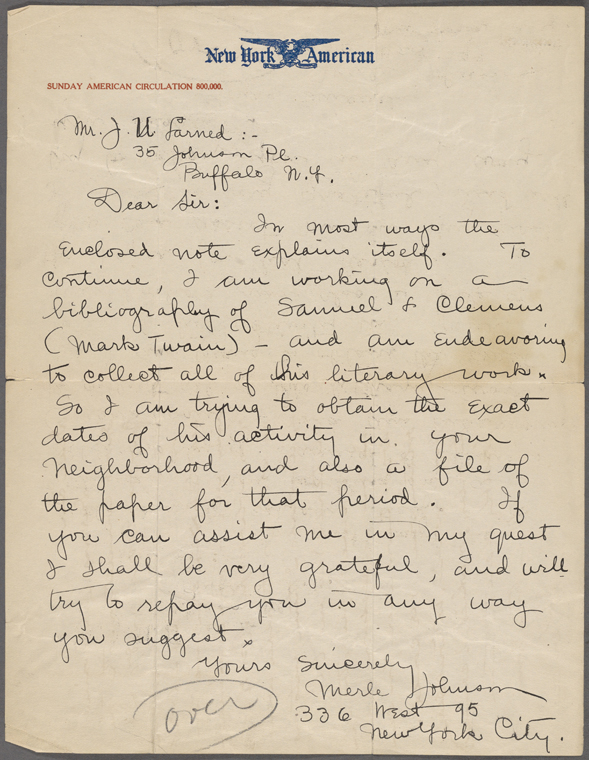 New York American
SUNDAY AMERICAN CIRCULATION 800,000.
Mr. J. N. Larned :-
35 Johnson Pl.
Buffalo N.Y.
Dear Sir:
In most ways the
Enclosed note explains itself. To
continue, I am working on a
bibliography of Samuel L Clemens
(Mark Twain) - and am Endeavoring
to collect all of his literary work.
So I am trying to obtain the exact
dates of his activity in your
neighborhood, and also a file of
the paper for that period. If
you can assist me in my quest
I shall be very grateful, and will
try to repay you in any way
you suggest.
Yours Sincerely
Merle Johnson
336 West 95
New York City.
over